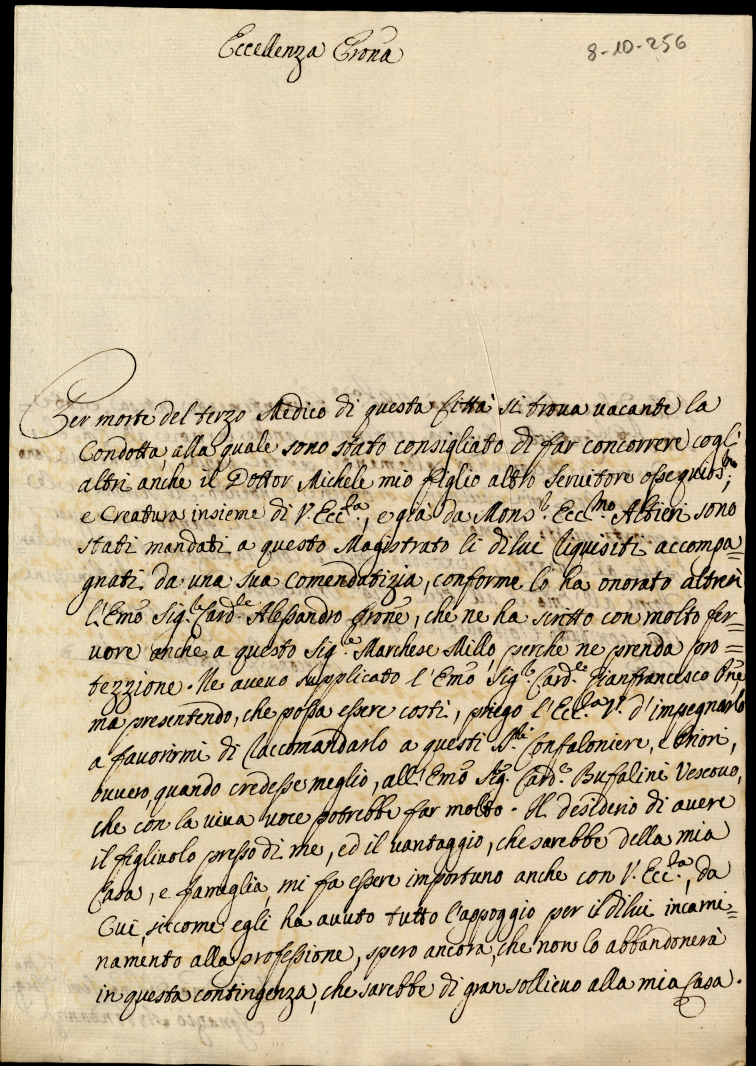 Eccellenza Prona
8-10-256
Per morte del terzo Medico di questa Città si trova vacante la
Condotta, alla quale sono stato consigliato di far concorrere cogli
altri anche il Dottor Michele mio figlio altro Servitore ossequiosmo,
e Creatura insieme di V. Eccza, e già da Monsr. Eccmo. Altieri sono
stati mandati a questo Magistrato li dilui Riquisiti accompa=
gnati da una sua Comendatizia, conforme lo ha onorato altresì
l'Emo Sigr. Carde. Alessandro Prone, che ne ha scritto con molto fer=
vore anche a questo Sige. Marchese Millo, perche ne prenda pro=
tezzione. Ne avevo supplicato l'Emo Sigr. Carde. Gianfrancesco Pne
ma presentendo, che possa essere costì, priego l'Ecca. V. d'impegnarlo
a favorirmi di raccomandarlo a questi Sri. Confaloniere, e Priori,
ovvero, quando credesse meglio, all'Emo Sigr. Carde. Bufalini Vescovo,
che con la viva voce potrebbe far molto. Il desiderio di avere
il figlivolo presso di me, ed il vantaggio, che sarebbe della mia
Casa, e famiglia, mi fa essere importuno anche con V. Eccza, da
Cui, siccome egli ha avuto tutto l'appoggio per il dilui incami=
namento alla professione, spero ancora, che non lo abbandonerà
in questa contingenza, che sarebbe di gran sollievo alla mia Casa.